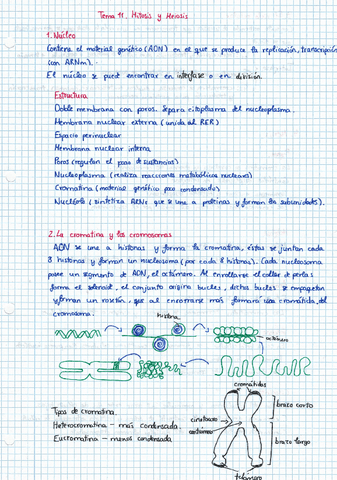 Tema 11. Mitosis y Meiosis
1. Núcleo
Contiene el material genético (ADN) en el que se produce la replicación, transcripción
(con ARNm).
El núcleo se puede encontrar en interfase o en división.
Estructura
Doble membrana con poros. Separa citoplasma del nucleoplasma.
Membrana nuclear externa (unida al RER)
Espacio perinuclear
Membrana nuclear interna
Poros (regulan el paso de sustancias)
Nucleoplasma (realiza reacciones metabólicas nucleares)
Cromatina (material genético poco condensado)
Nucléolo (sintetiza ARNr que se une a proteínas y forman las subunidades).
2. La cromatina y los cromosomas
ADN se une a histonas y forma la cromatina, éstas se juntan cada
8 histonas y forman un nucleosoma (por cada 8 histonas). Cada nucleosoma
posee un segmento de ADN, el octámero. Al enrollarse el collar de perlas
forma el solenoide, el conjunto origina bucles, dichos bucles se empaquetan
y forman un rosetón, que al enrollarse más formará una cromátida, del
cromosoma.
histona
octámero
cromátidas
Tipos de cromatina.
Heterocromatina - más condensada.
Eucromatina - menos condensada
brazo corto
centrómero
brazo largo
telómero